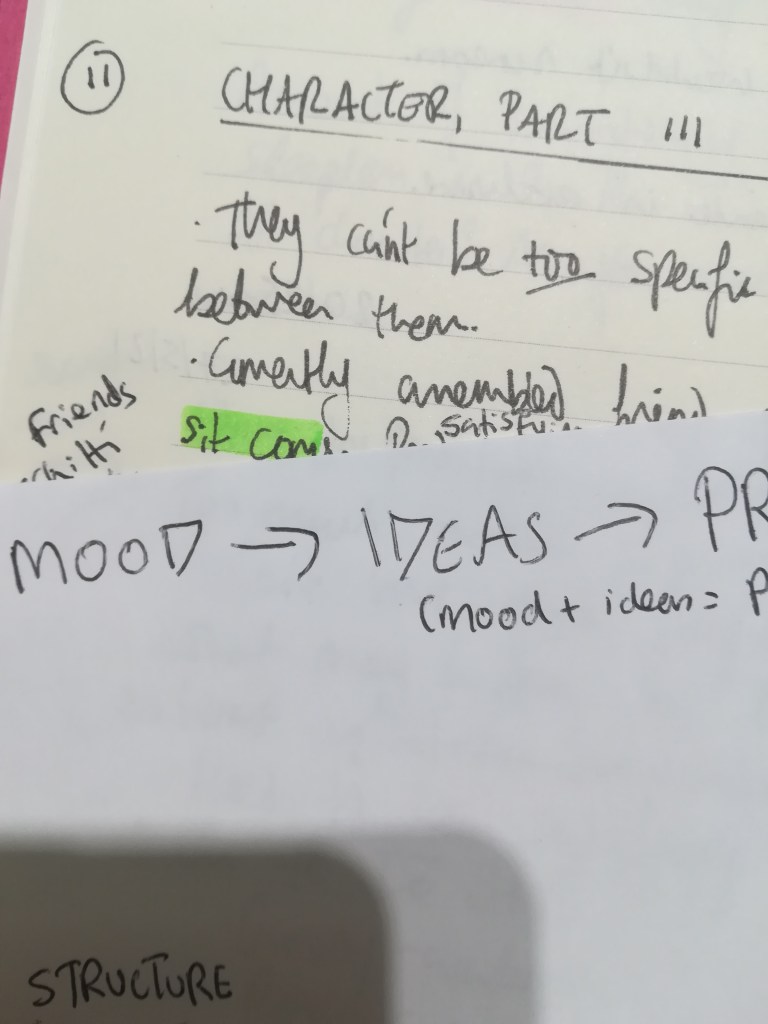 11
CHARACTER, PART III
· They can't be too specific
between them.
· Currently assembled friend
Friends
sit coms.
satisfy
MOOD → IDEAS → PR
(mood + ideas = P
STRUCTURE